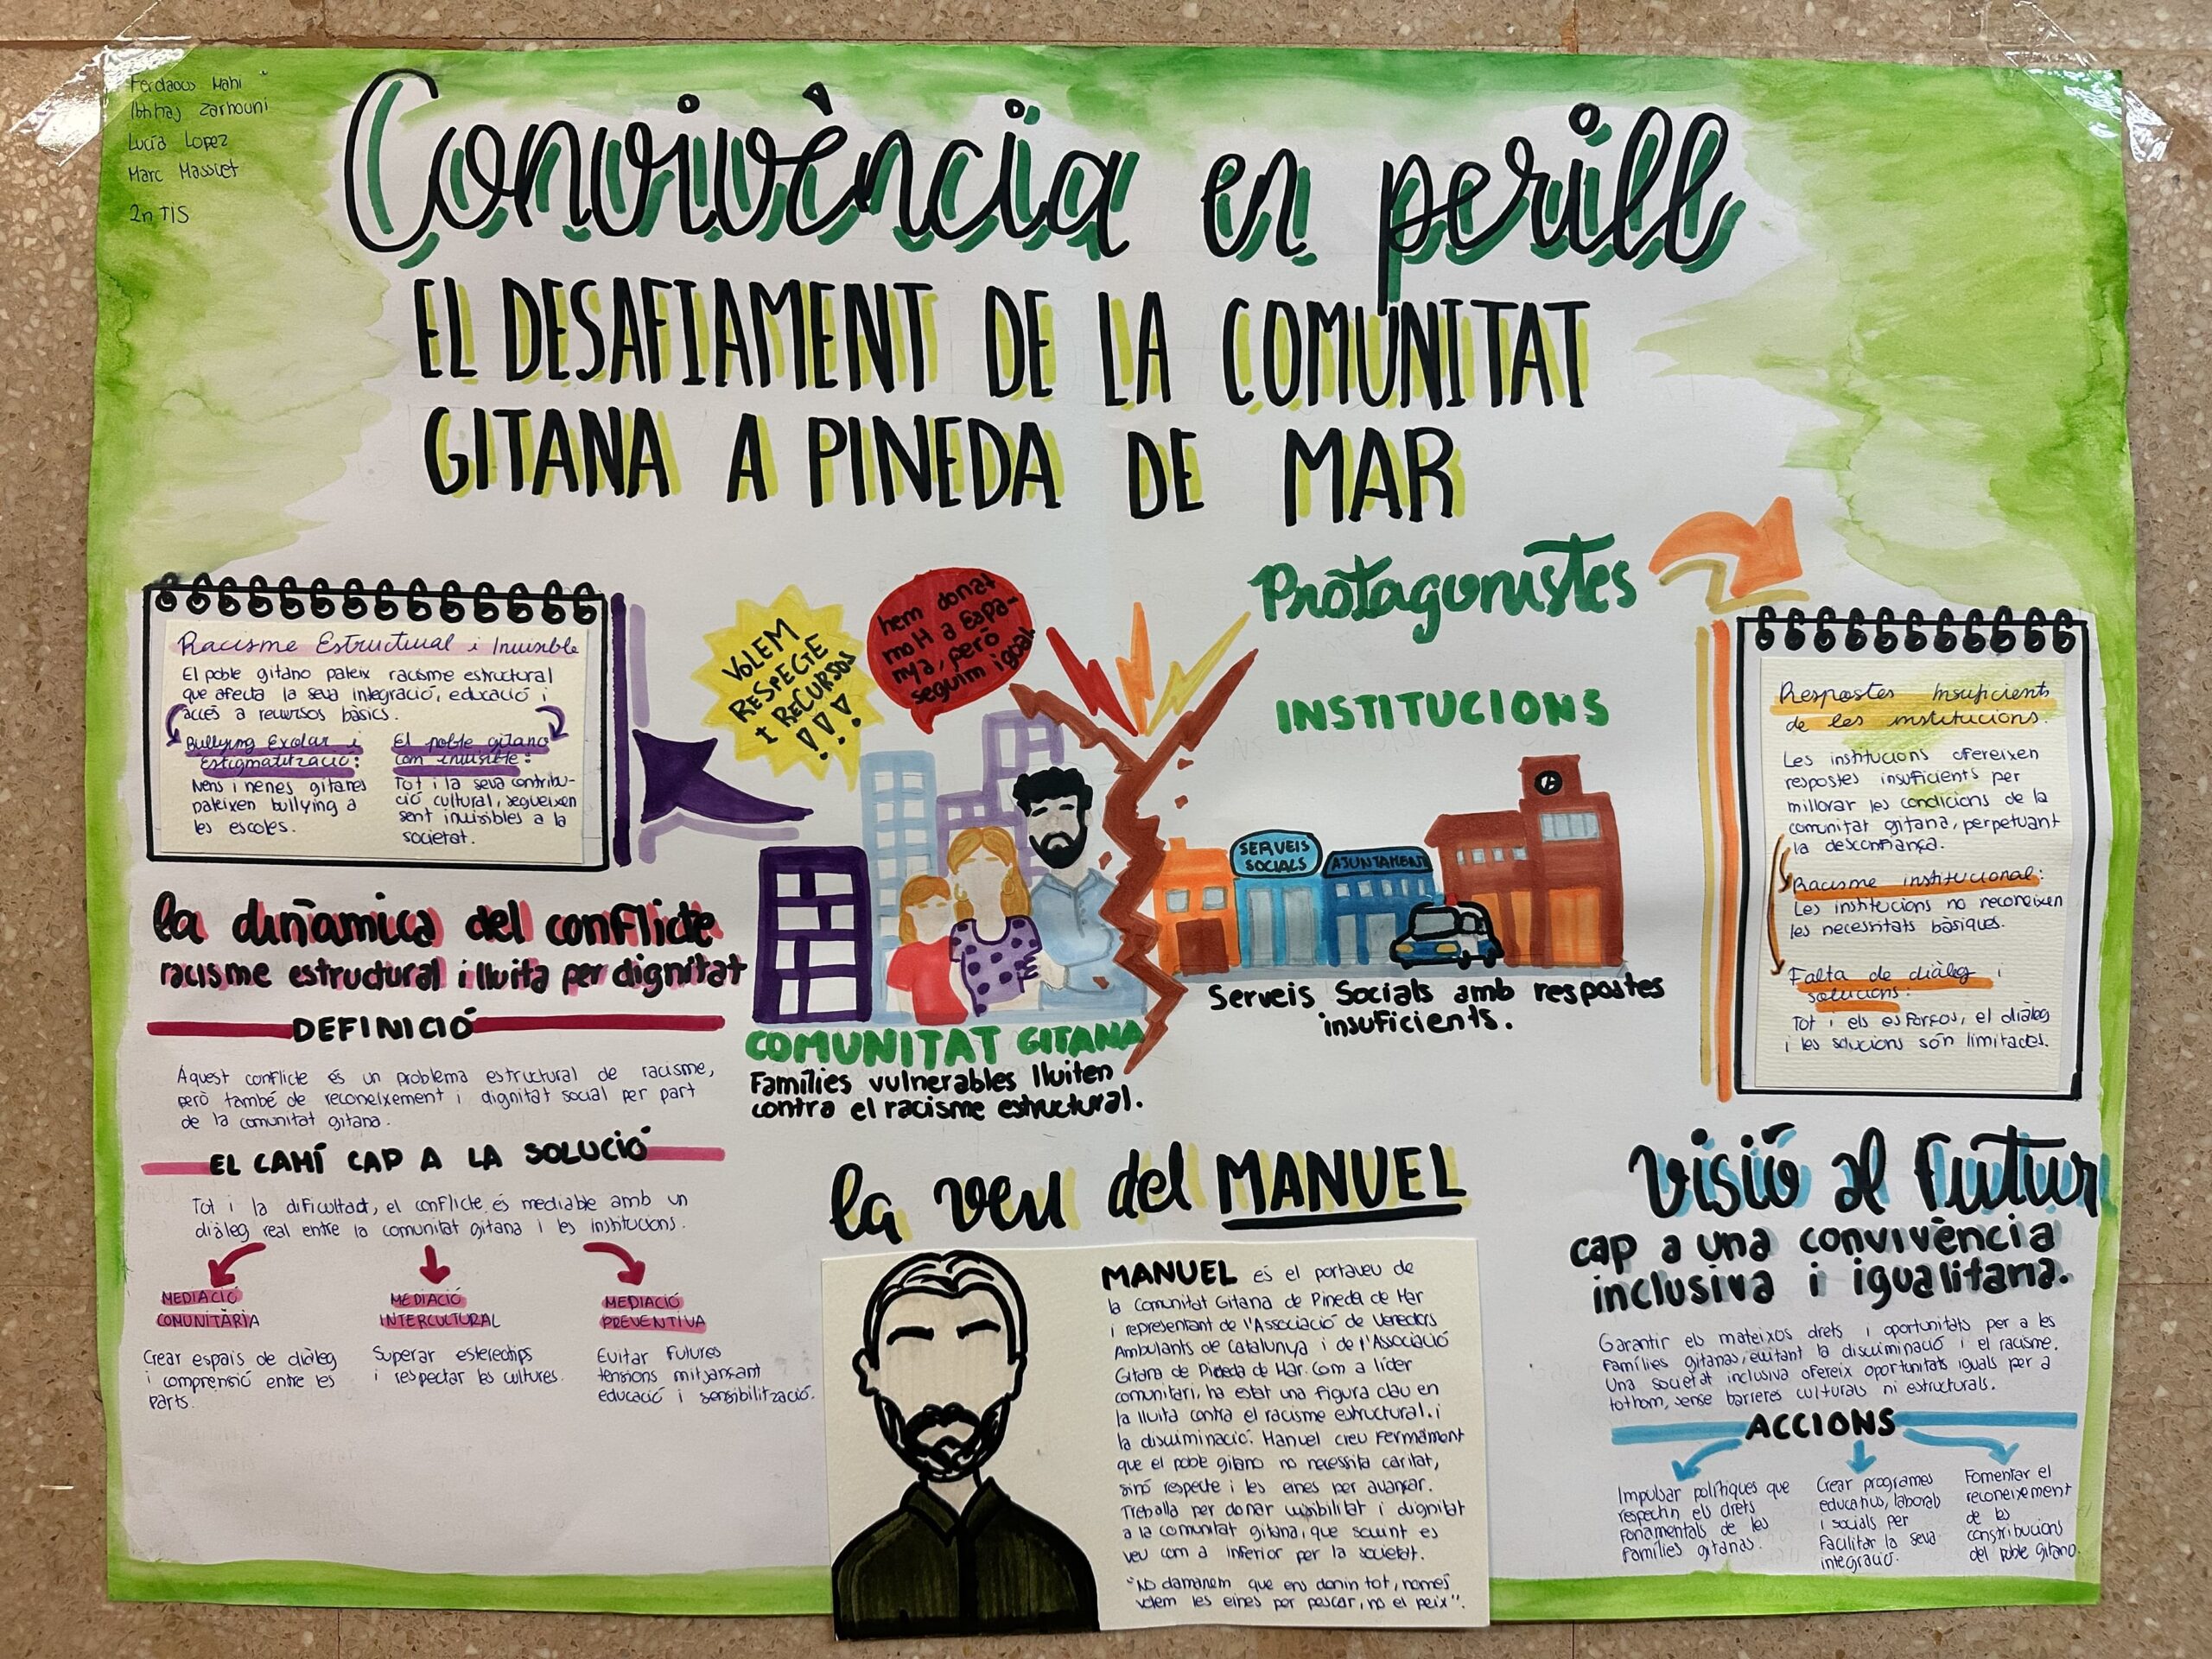 Ferdaous Mahi
Ibtihaj Zarhouni
Lucía Lopez
Marc Massuet
2n TIS
Convivència en perill
EL DESAFIAMENT DE LA COMUNITAT
GITANA A PINEDA DE MAR
Racisme Estructural i Invisible
El poble gitano pateix racisme estructural
que afecta la seva integració, educació i
accés a recursos bàsics.
Bullying Escolar i
Estigmatització:
Nens i nenes gitanes
pateixen bullying a
les escoles.
El poble gitano
com invisible:
Tot i la seva contribu-
ció cultural, segueixen
sent invisibles a la
societat.
VOLEM
RESPECTE
I RECURSOS
!!!
hem donat
molt a Espa-
nya, però
seguim igual
Protagonistes
INSTITUCIONS
SERVEIS
SOCIALS
AJUNTAMENT
Serveis Socials amb respostes
insuficients.
COMUNITAT GITANA
Famílies vulnerables lluiten
contra el racisme estructural.
Respostes Insuficients
de les institucions.
Les institucions ofereixen
respostes insuficients per
millorar les condicions de la
comunitat gitana, perpetuant
la desconfiança.
Racisme institucional:
Les institucions no reconeixen
les necessitats bàsiques.
Falta de diàleg i
solucions:
Tot i els esforços, el diàleg
i les solucions són limitades.
la dinàmica del conflicte
racisme estructural i lluita per dignitat
DEFINICIÓ
Aquest conflicte és un problema estructural de racisme,
però també de reconeixement i dignitat social per part
de la comunitat gitana.
EL CAMÍ CAP A LA SOLUCIÓ
Tot i la dificultat, el conflicte és mediable amb un
diàleg real entre la comunitat gitana i les institucions.
MEDIACIÓ
COMUNITÀRIA
Crear espais de diàleg
i comprensió entre les
parts.
MEDIACIÓ
INTERCULTURAL
Superar estereotips
i respectar les cultures.
MEDIACIÓ
PREVENTIVA
Evitar futures
tensions mitjançant
educació i sensibilització.
la veu del MANUEL
MANUEL és el portaveu de
la Comunitat Gitana de Pineda de Mar
i representant de l'Associació de Venedors
Ambulants de Catalunya i de l'Associació
Gitana de Pineda de Mar. Com a líder
comunitari, ha estat una figura clau en
la lluita contra el racisme estructural i
la discriminació. Manuel creu fermament
que el poble gitano no necessita caritat,
sinó respecte i les eines per avançar.
Treballa per donar visibilitat i dignitat
a la comunitat gitana, que sovint es
veu com a inferior per la societat.
"No damanem que ens donin tot, només
volem les eines per pescar, no el peix".
visió al futur
cap a una convivència
inclusiva i igualitaria.
Garantir els mateixos drets i oportunitats per a les
famílies gitanas, evitant la discriminació i el racisme.
Una societat inclusiva ofereix oportunitats iguals per a
tothom, sense barreres culturals ni estructurals.
ACCIONS
Impulsar polítiques que
respectin els drets
fonamentals de les
famílies gitanas.
Crear programes
educatius, laborals
i socials per
facilitar la seva
integració.
Fomentar el
reconeixement
de les
constribucions
del poble gitano.